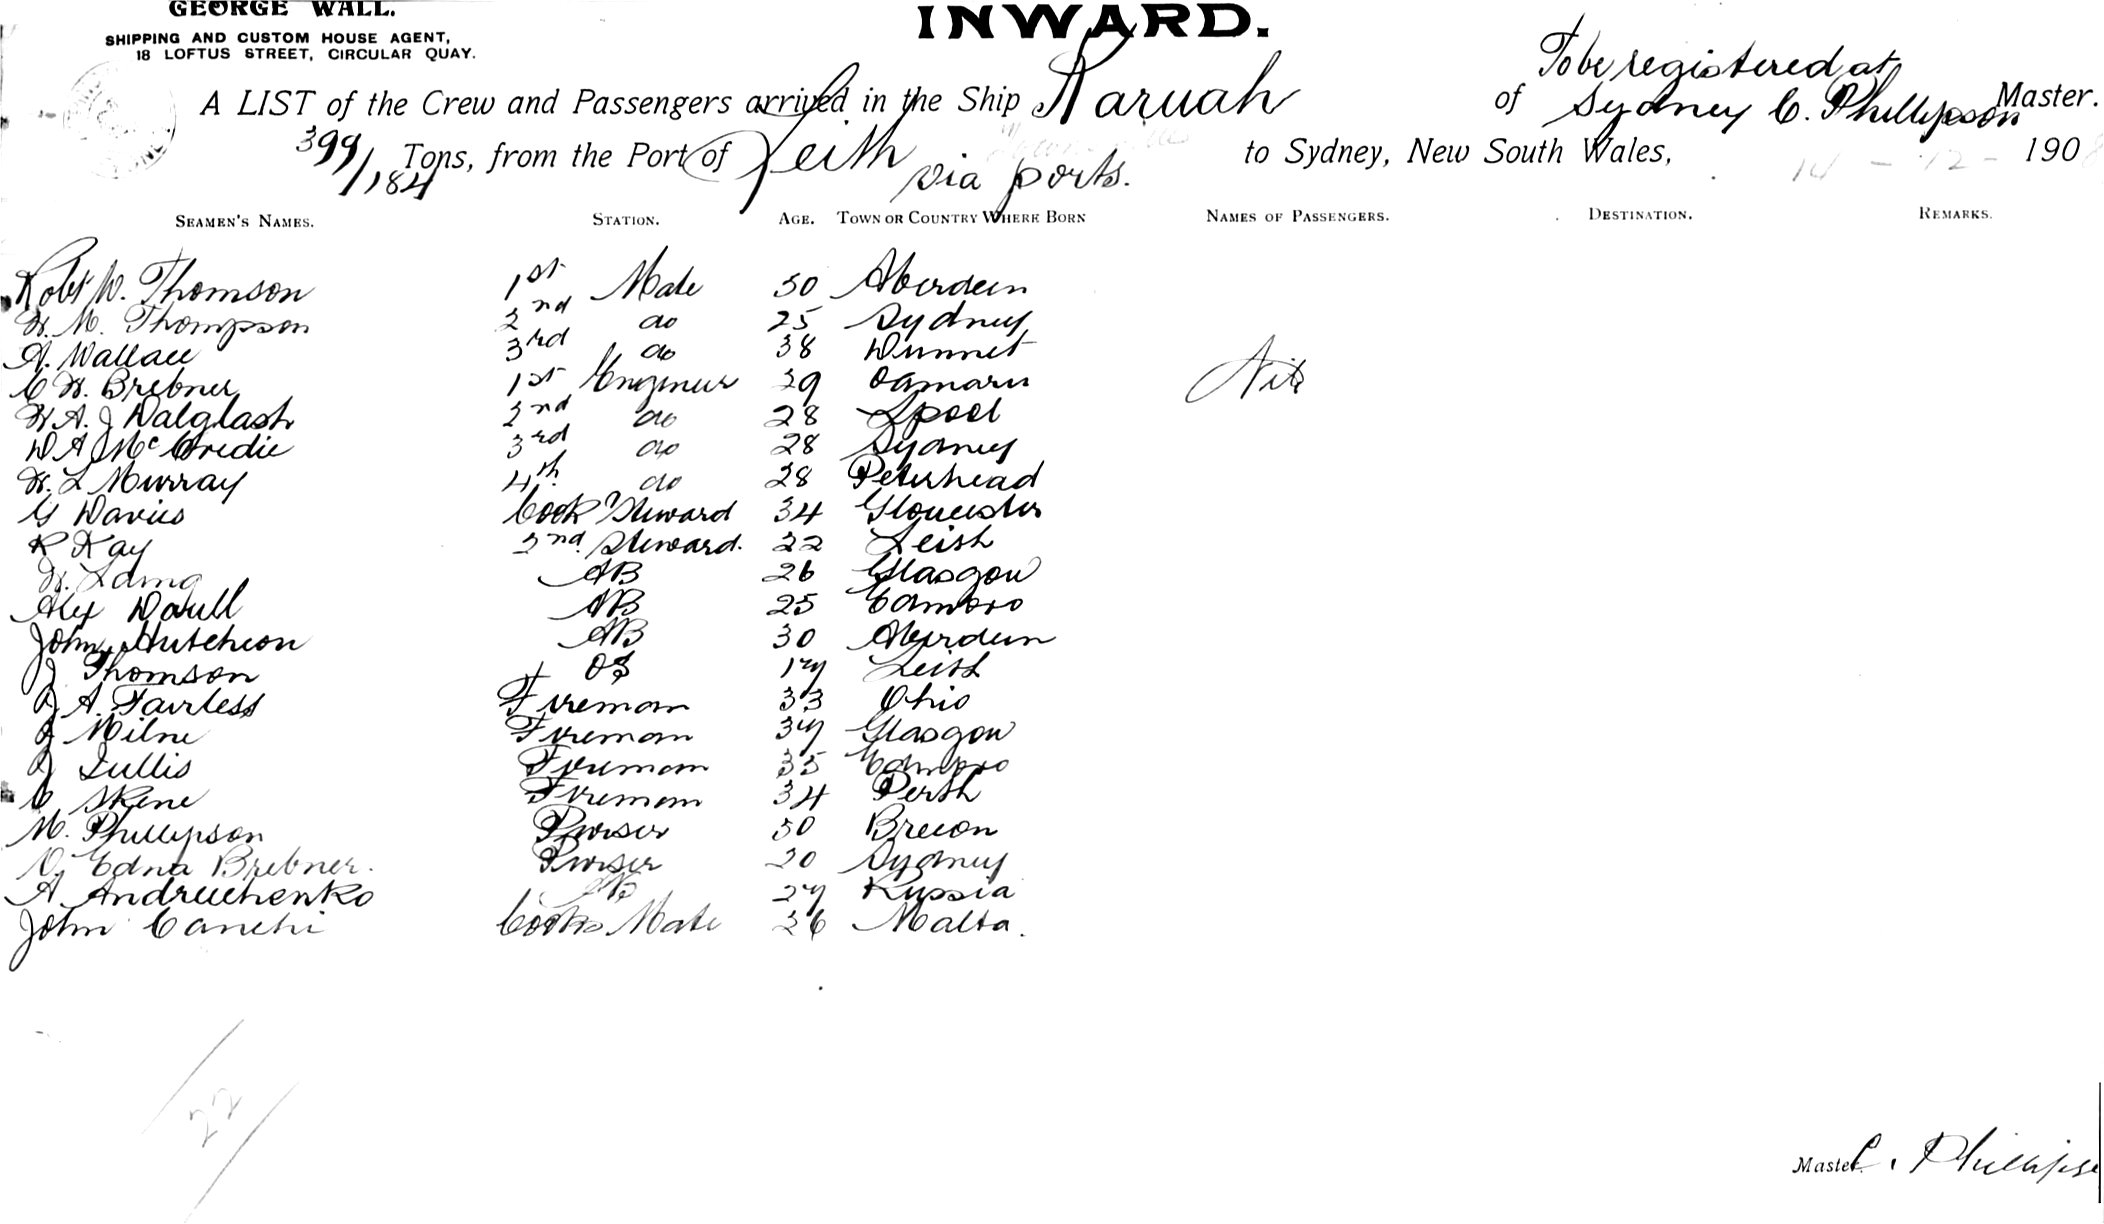 GEORGE WALL.
SHIPPING AND CUSTOM HOUSE AGENT,
18 LOFTUS STREET, CIRCULAR QUAY.
INWARD.
To be registered at
A LIST of the Crew and Passengers arrived in the Ship Karuah of Sydney C. Phillipson Master.
399/184 Tons, from the Port of Leith via ports. to Sydney, New South Wales, 14-12-1908
SEAMEN'S NAMES. STATION. AGE. TOWN OR COUNTRY WHERE BORN NAMES OF PASSENGERS. DESTINATION. REMARKS.
Robt W. Thomson 1st Mate 50 Aberdeen
W. M. Thompson 2nd do 25 Sydney
A. Wallace 3rd do 38 Dunnet
C W. Brebner 1st Engineer 39 Oamaru Nil
W A. J Dalglash 2nd do 28 Lpool
D A J McCredie 3rd do 28 Sydney
W. L Murray 4th do 28 Peterhead
G Davies Cook & Steward 34 Gloucester
R Kay 2nd Steward. 22 Leith
W. Laing AB 26 Glasgow
Alex Daull AB 25 Edinboro
John Hutcheon AB 30 Aberdeen
J Thomson OS 17 Leith
J A. Fairless Fireman 33 Ohio
J Milne Fireman 37 Glasgow
J Tullis Fireman 35 Edinboro
C Skene Fireman 34 Perth
M. Phillipson Purser 50 Brecon
V. Edna Brebner. Purser 20 Sydney
A Andruchenko AB 27 Russia
John Canchi Cooks Mate 26 Malta.
22
Master C. Phillips